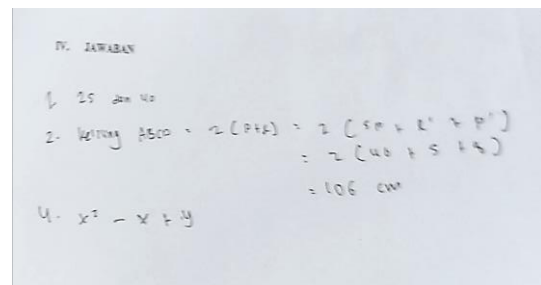 IV. JAWABAN
1. 25 dan 40
2. Keliling ABCD = 2 (p+l) = 2 (50 + l' + p')
= 2 (40 + 5 + 8)
= 106 cm
4. x² - x + y